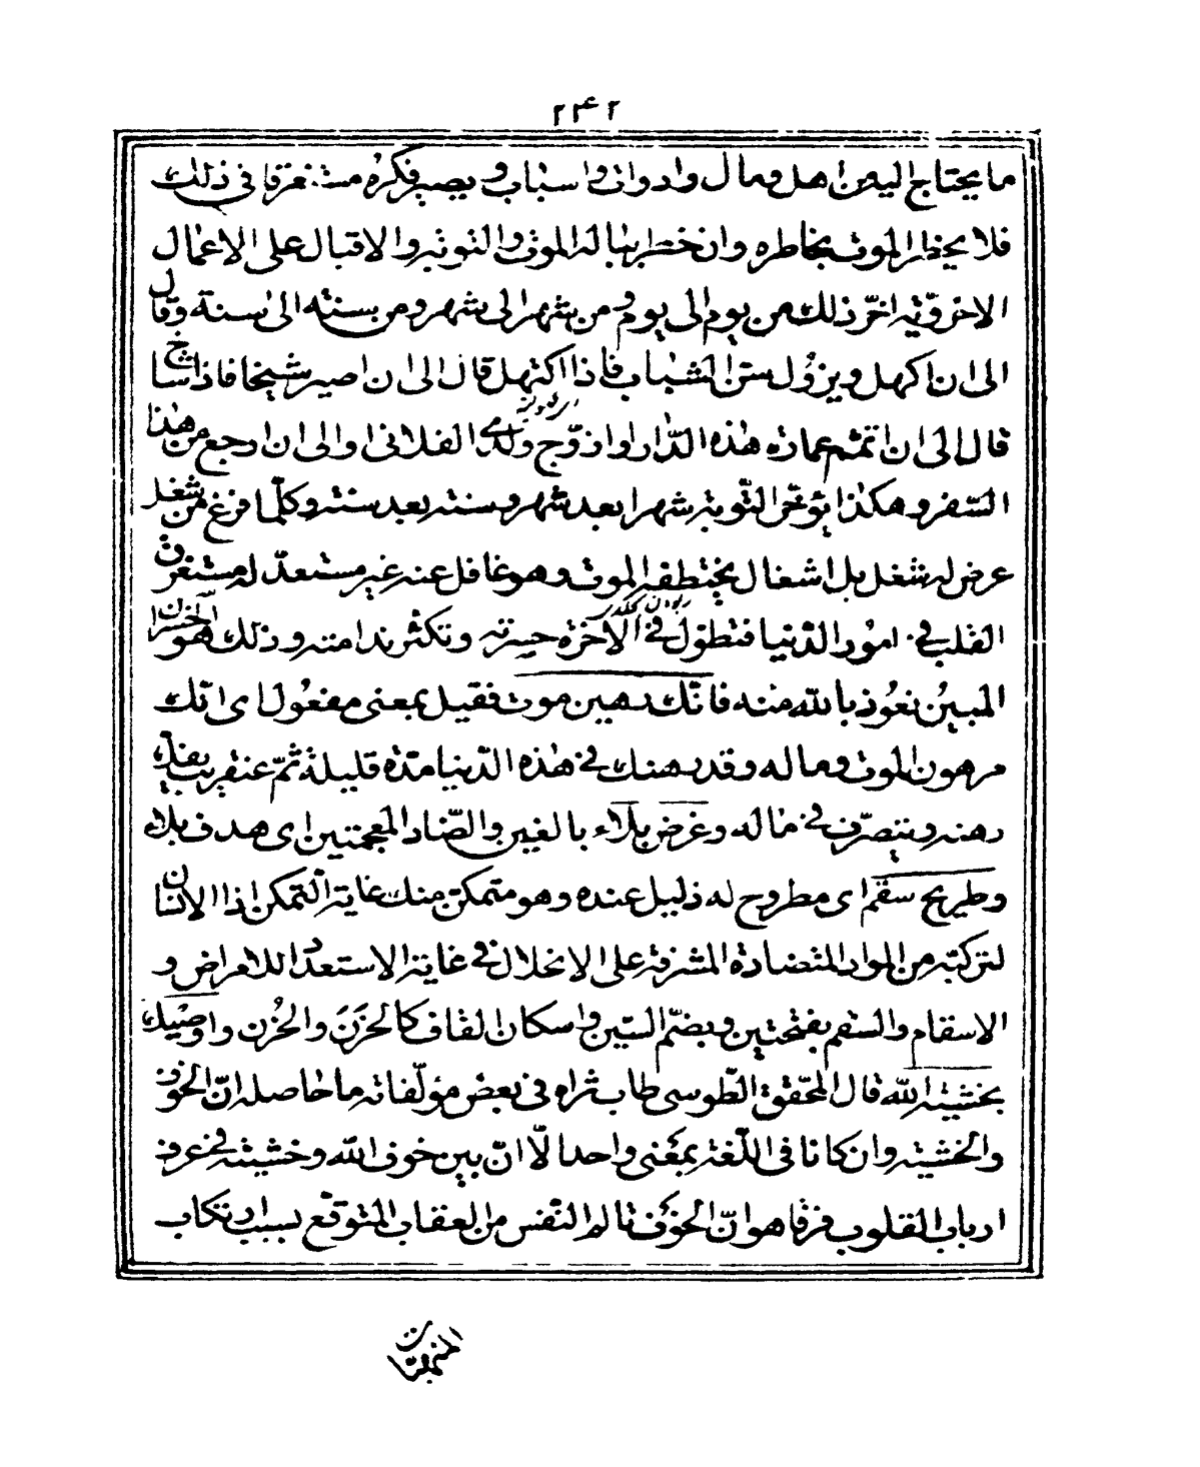 ٢٤٢
ما يحتاج اليه من اهل ومال وادوات واسباب ويصير فكره مستغرقا فى ذلك
فلا يخطر الموت بخاطره وان خطر بباله الموت والتوبة والاقبال على الاعمال
الاخرويّة اخّر ذلك من يوم الى يوم ومن شهر الى شهر ومن سنة الى سنة وقال
الى ان اكهل ويزول سنّ الشباب فاذا اكتهل قال الى ان اصير شيخا فاذا شاخ
قال الى ان تتمّ عمارة هذه الدّار او ازوّج ولدى الفلانى او الى ان ارجع من هذا
السّفر وهكذا يؤخّر التّوبة شهرا بعد شهر وسنة بعد سنة وكلّما فرغ من شغل
عرض له شغل بل اشغال يختطفه الموت وهو غافل عنه غير مستعدّ له مستغرق
القلب فى امور الدّنيا فتطول فى الآخرة حسرته وتكثر ندامته وذلك هو الخسران
المبين نعوذ بالله منه فانّك رهين موت فقيل بمعنى مفعول اى انّك
مرهون الموت وماله وقد رهنك فى هذه الدّنيا مدّة قليلة ثمّ عنقريب يفكّ
رهنه ويتصرّف فى ماله وغرض بلاء بالغين والضّاد المعجمتين اى هدف بلاء
وطريح سقم اى مطروح له ذليل عنده وهو متمكّن منك غاية التّمكن اذا الانسان
لتركّبه من الموادّ المتضادة المشرفة على الانحلال فى غاية الاستعداد للاعراض و
الاسقام والسّقم بفتحتين وبضمّ السّين واسكان القاف كالحَزَن والحُزن واوصيك
بخشية الله قال المحقّق الطّوسى طاب ثراه فى بعض مؤلّفاته ما حاصله انّ الخوف
والخشية وان كانا فى اللّغة بمعنى واحد الّا انّ بين خوف الله وخشيته فى عرف
ارباب القلوب فرقا هو انّ الخوف تالّم النّفس من العقاب المتوقّع بسبب ارتكاب